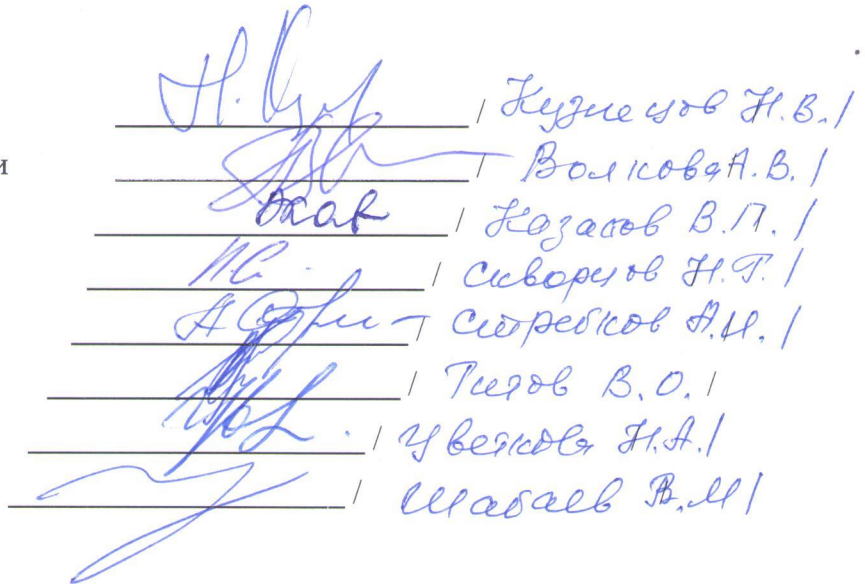 / Кузнецов Н.В./
и / Волкова А.В. /
/ Казаков В.П. /
/ Скворцов Н.Г. /
/ Стребков А.И. /
/ Титов В.О. /
/ Цветкова Н.А./
/ Шабаев В.М/